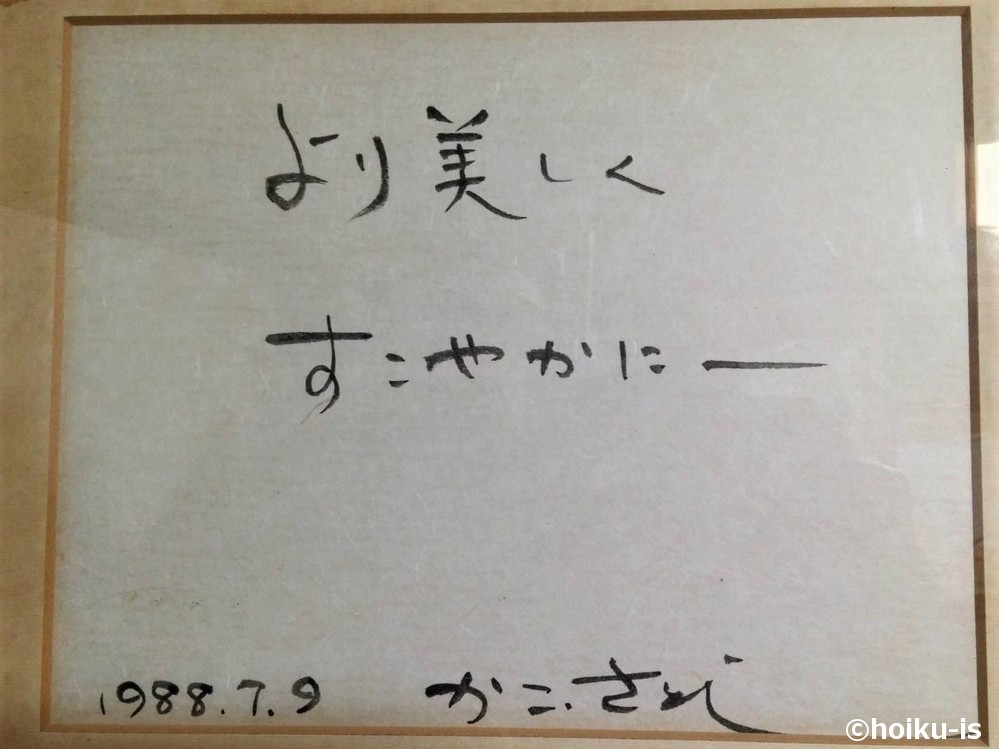 より美しく
すこやかに―
1988.7.9 かこ.さとし
©hoiku-is